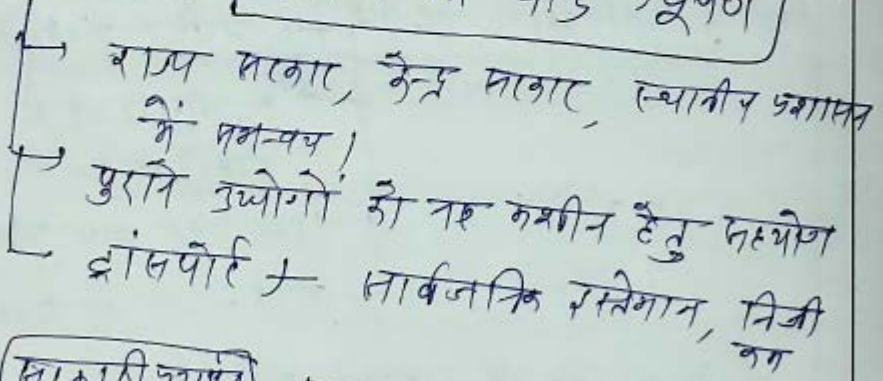 राज्य सरकार, केन्द्र सरकार, स्थानीय प्रशासन
में समन्वय।
पुराने उद्योगों को नए मशीन हेतु सहयोग
ट्रांसपोर्ट → सार्वजनिक इस्तेमाल, निजी
कम